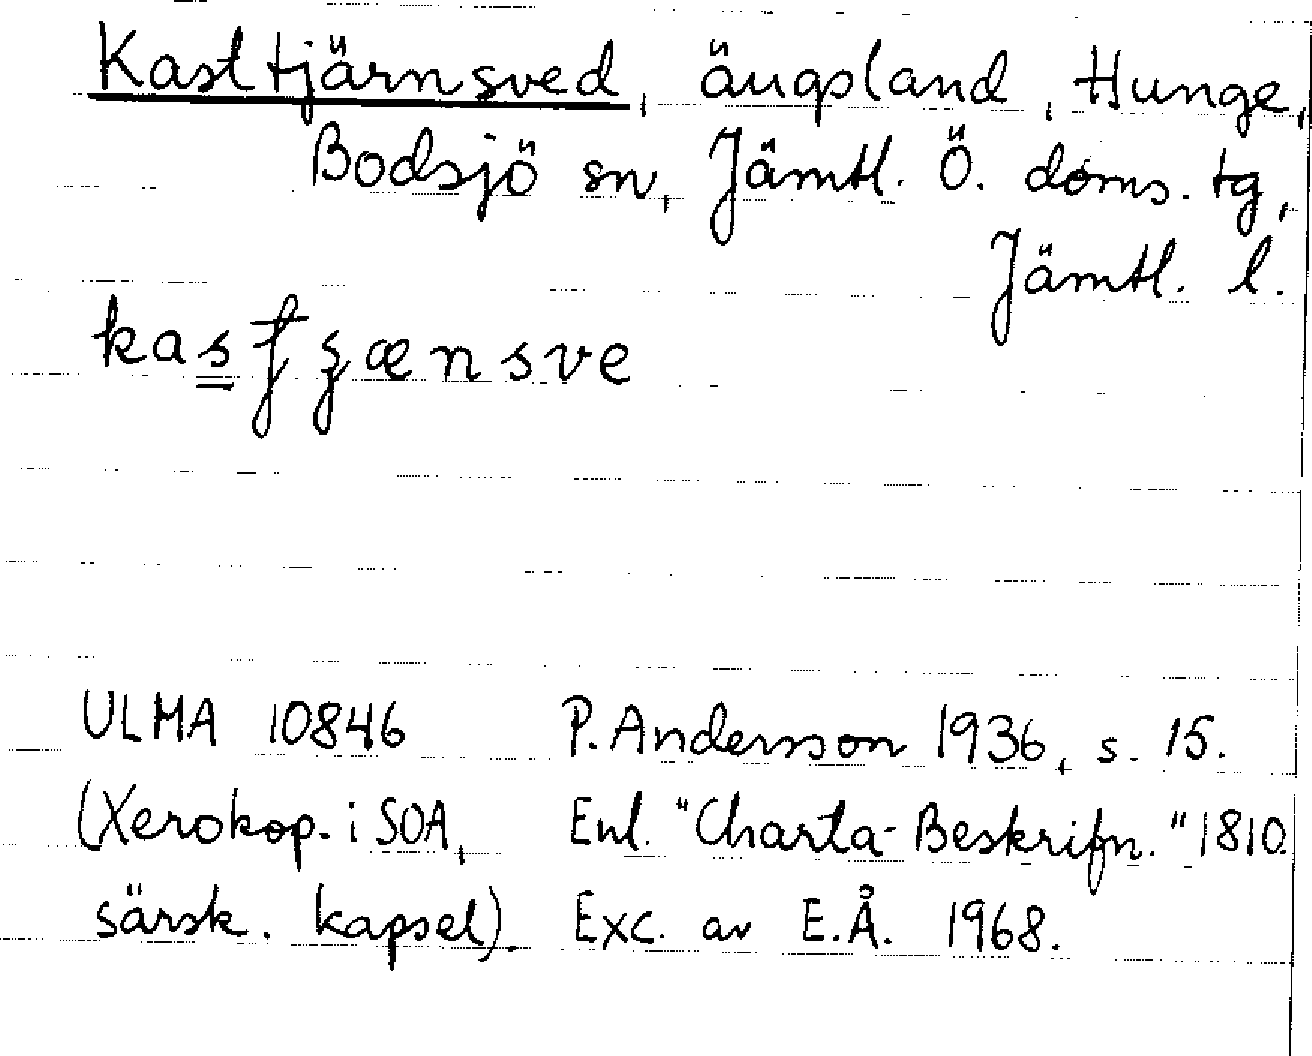 Kasttjärnsved, ängsland, Hunge,
Bodsjö sn, Jämtl. Ö. doms. tg,
Jämtl. l.
ULMA 10846 P. Andersson 1936, s. 15.
(Xerokop. i SOA, Enl. "Charta-Beskrifn." 1810.
särsk. kapsel). Exc. av E.Å. 1968.